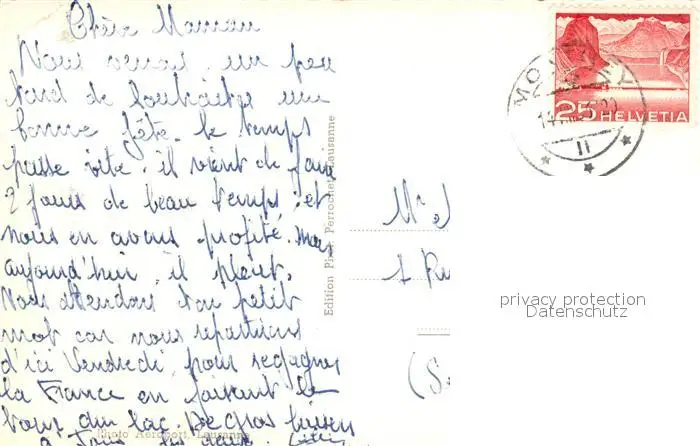 Chère Maman
Nous venons un peu
tard de souhaiter une
bonne fête. le temps
passe vite. il vient de faire
2 jours de beau temps et
nous en avons profité. mais
aujourd'hui il pleut.
Nous attendons ton petit
mot car nous repartirons
d'ici Vendredi pour regagner
la France en faisant le
tour du lac. De gros baisers
à tous
Photo Aéroport, Lausanne
Edition Phot. Perrochet Lausanne
MONTHEY
25 HELVETIA
II
Mr
1 Ru
(S
privacy protection
Datenschutz